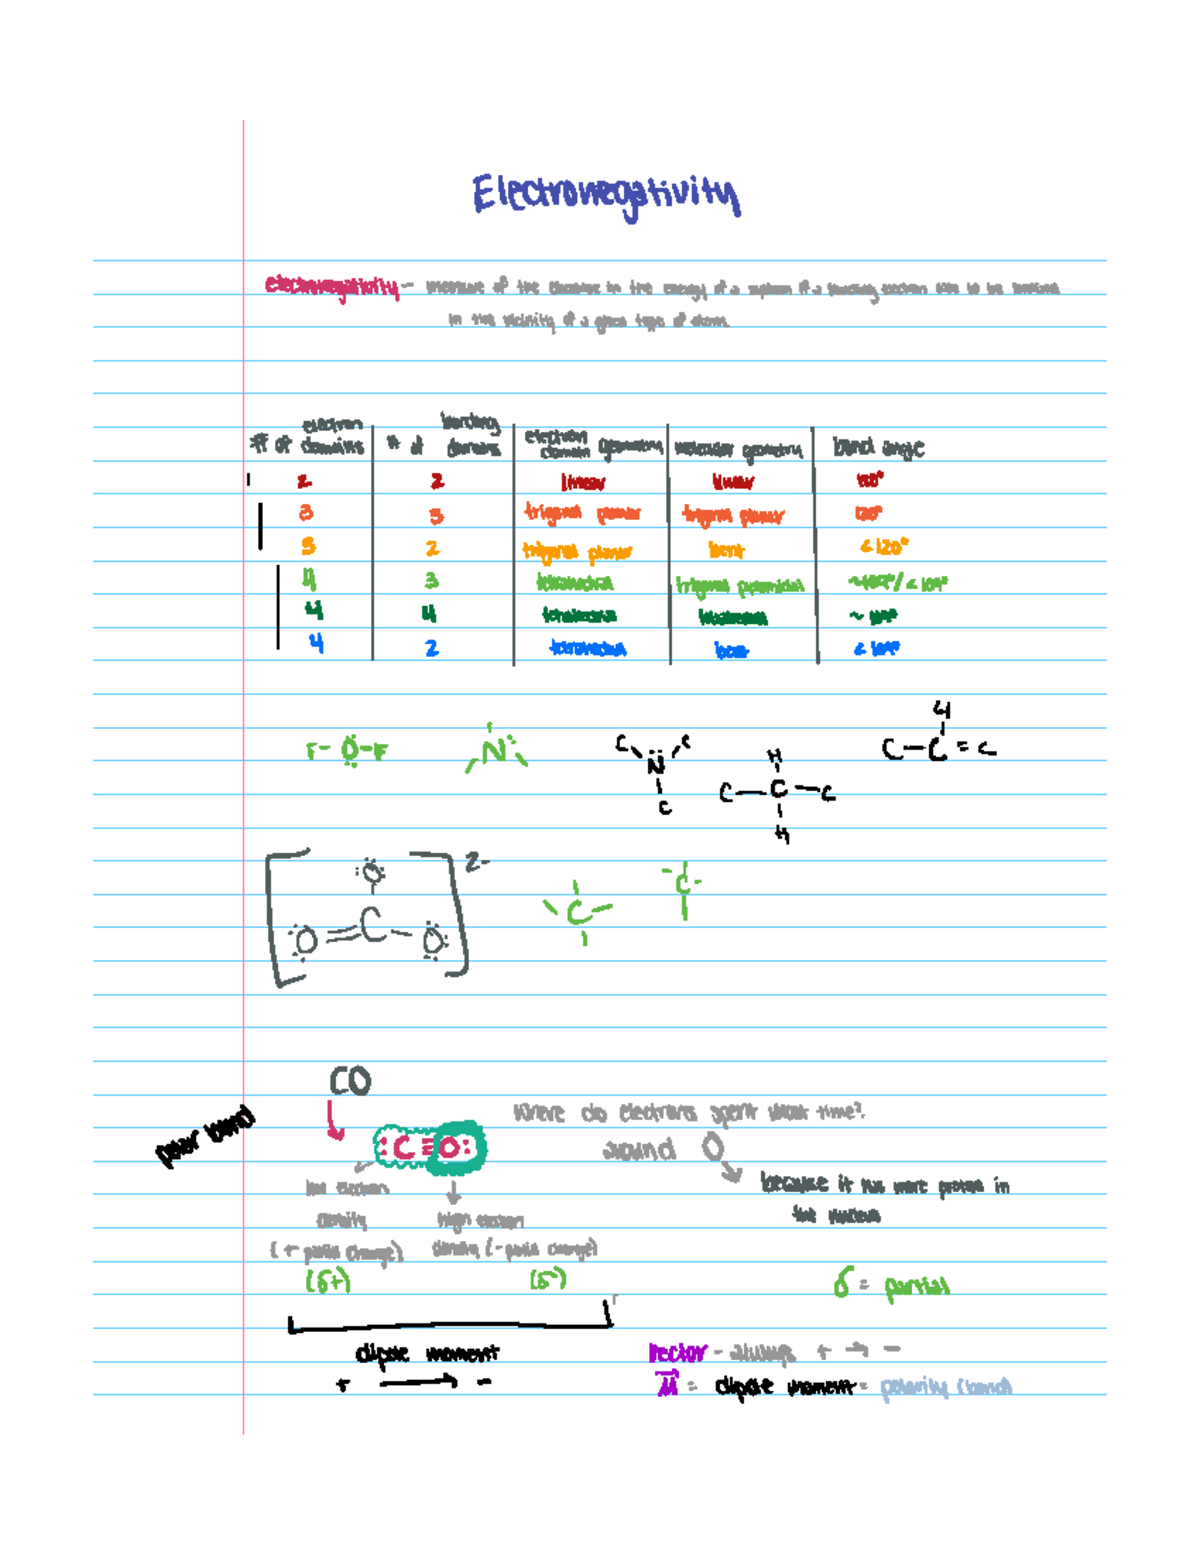 Electronegativity
electronegativity - measure of the decrease in the energy of a system if a bonding electron were to be
in the vicinity of a given type of atom.
# of electron domains | # of bonding domains | electron domain geometry | molecular geometry | bond angle
2 | 2 | linear | linear | 180°
3 | 3 | trigonal planar | trigonal planar | 120°
3 | 2 | trigonal planar | bent | < 120°
4 | 3 | tetrahedral | trigonal pyramidal | ~109°/ < 109°
4 | 4 | tetrahedral | tetrahedral | ~ 109°
4 | 2 | tetrahedral | bent | < 109°
F - O - F
N
C N C
C
H
C - C - C
H
C - C = C
[ O
O = C - O ] 2-
C
C
CO
polar bond
:C ≡ O:
Where do electrons spent most time?
around O
because it has more protons in
the nucleus
low electron
density
(+ partial charge)
(δ+)
high electron
density (- partial charge)
(δ-)
δ = partial
dipole moment
+ → -
vector - always + → -
μ = dipole moment = polarity (bond)